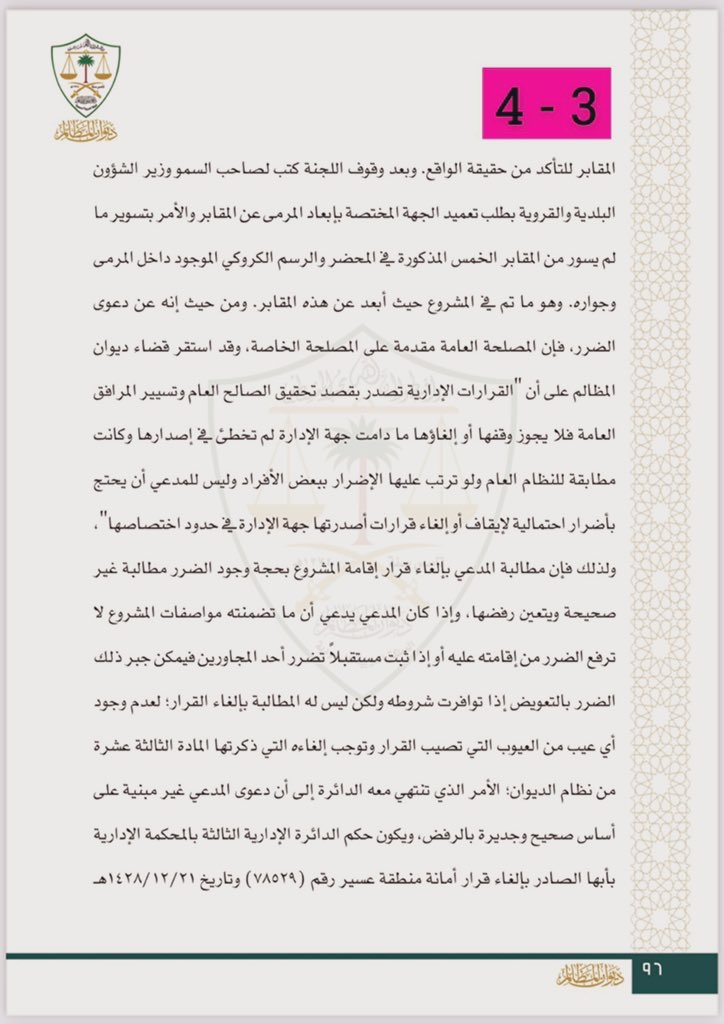 ديوان المظالم
4 - 3
المقابر للتأكد من حقيقة الواقع. وبعد وقوف اللجنة كتب لصاحب السمو وزير الشؤون
البلدية والقروية بطلب تعميد الجهة المختصة بإبعاد المرمى عن المقابر والأمر بتسوير ما
لم يسور من المقابر الخمس المذكورة في المحضر والرسم الكروكي الموجود داخل المرمى
وجواره. وهو ما تم في المشروع حيث أبعد عن هذه المقابر. ومن حيث إنه عن دعوى
الضرر، فإن المصلحة العامة مقدمة على المصلحة الخاصة، وقد استقر قضاء ديوان
المظالم على أن "القرارات الإدارية تصدر بقصد تحقيق الصالح العام وتسيير المرافق
العامة فلا يجوز وقفها أو إلغاؤها ما دامت جهة الإدارة لم تخطئ في إصدارها وكانت
مطابقة للنظام العام ولو ترتب عليها الإضرار ببعض الأفراد وليس للمدعي أن يحتج
بأضرار احتمالية لإيقاف أو إلغاء قرارات أصدرتها جهة الإدارة في حدود اختصاصها"،
ولذلك فإن مطالبة المدعي بإلغاء قرار إقامة المشروع بحجة وجود الضرر مطالبة غير
صحيحة ويتعين رفضها، وإذا كان المدعي يدعي أن ما تضمنته مواصفات المشروع لا
ترفع الضرر من إقامته عليه أو إذا ثبت مستقبلاً تضرر أحد المجاورين فيمكن جبر ذلك
الضرر بالتعويض إذا توافرت شروطه ولكن ليس له المطالبة بإلغاء القرار؛ لعدم وجود
أي عيب من العيوب التي تصيب القرار وتوجب إلغاءه التي ذكرتها المادة الثالثة عشرة
من نظام الديوان؛ الأمر الذي تنتهي معه الدائرة إلى أن دعوى المدعي غير مبنية على
أساس صحيح وجديرة بالرفض، ويكون حكم الدائرة الإدارية الثالثة بالمحكمة الإدارية
بأبها الصادر بإلغاء قرار أمانة منطقة عسير رقم (٧٨٥٢٩) وتاريخ ١٤٢٨/١٢/٢١هـ
ديوان المظالم
٩٦